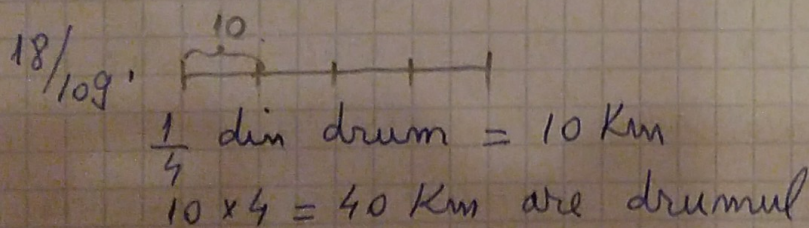 10
18/109.
1/4 din drum = 10 Km
10 × 4 = 40 Km are drumul